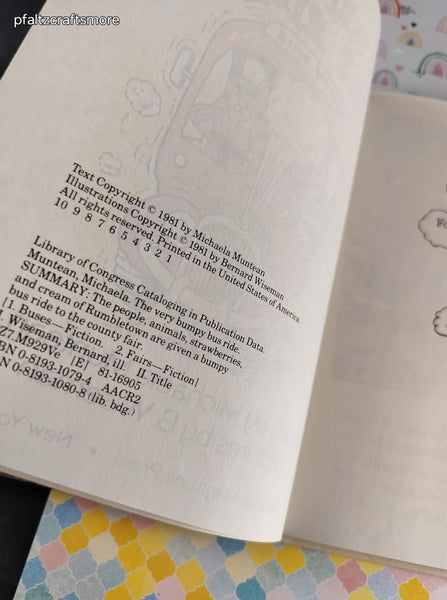 pfaltzcraftsmore
Text Copyright © 1981 by Michaela Muntean
Illustrations Copyright © 1981 by Bernard Wiseman
All rights reserved. Printed in the United States of America
10 9 8 7 6 5 4 3 2 1
Library of Congress Cataloging in Publication Data.
Muntean, Michaela. The very bumpy bus ride.
SUMMARY: The people, animals, strawberries,
and cream of Rumbletown are given a bumpy
bus ride to the county fair.
[1. Buses—Fiction. 2. Fairs—Fiction]
I. Wiseman, Bernard, ill. II. Title
PZ7.M929Ve [E] 81-16905
ISBN 0-8193-1079-4 AACR2
N 0-8193-1080-8 (lib. bdg.)